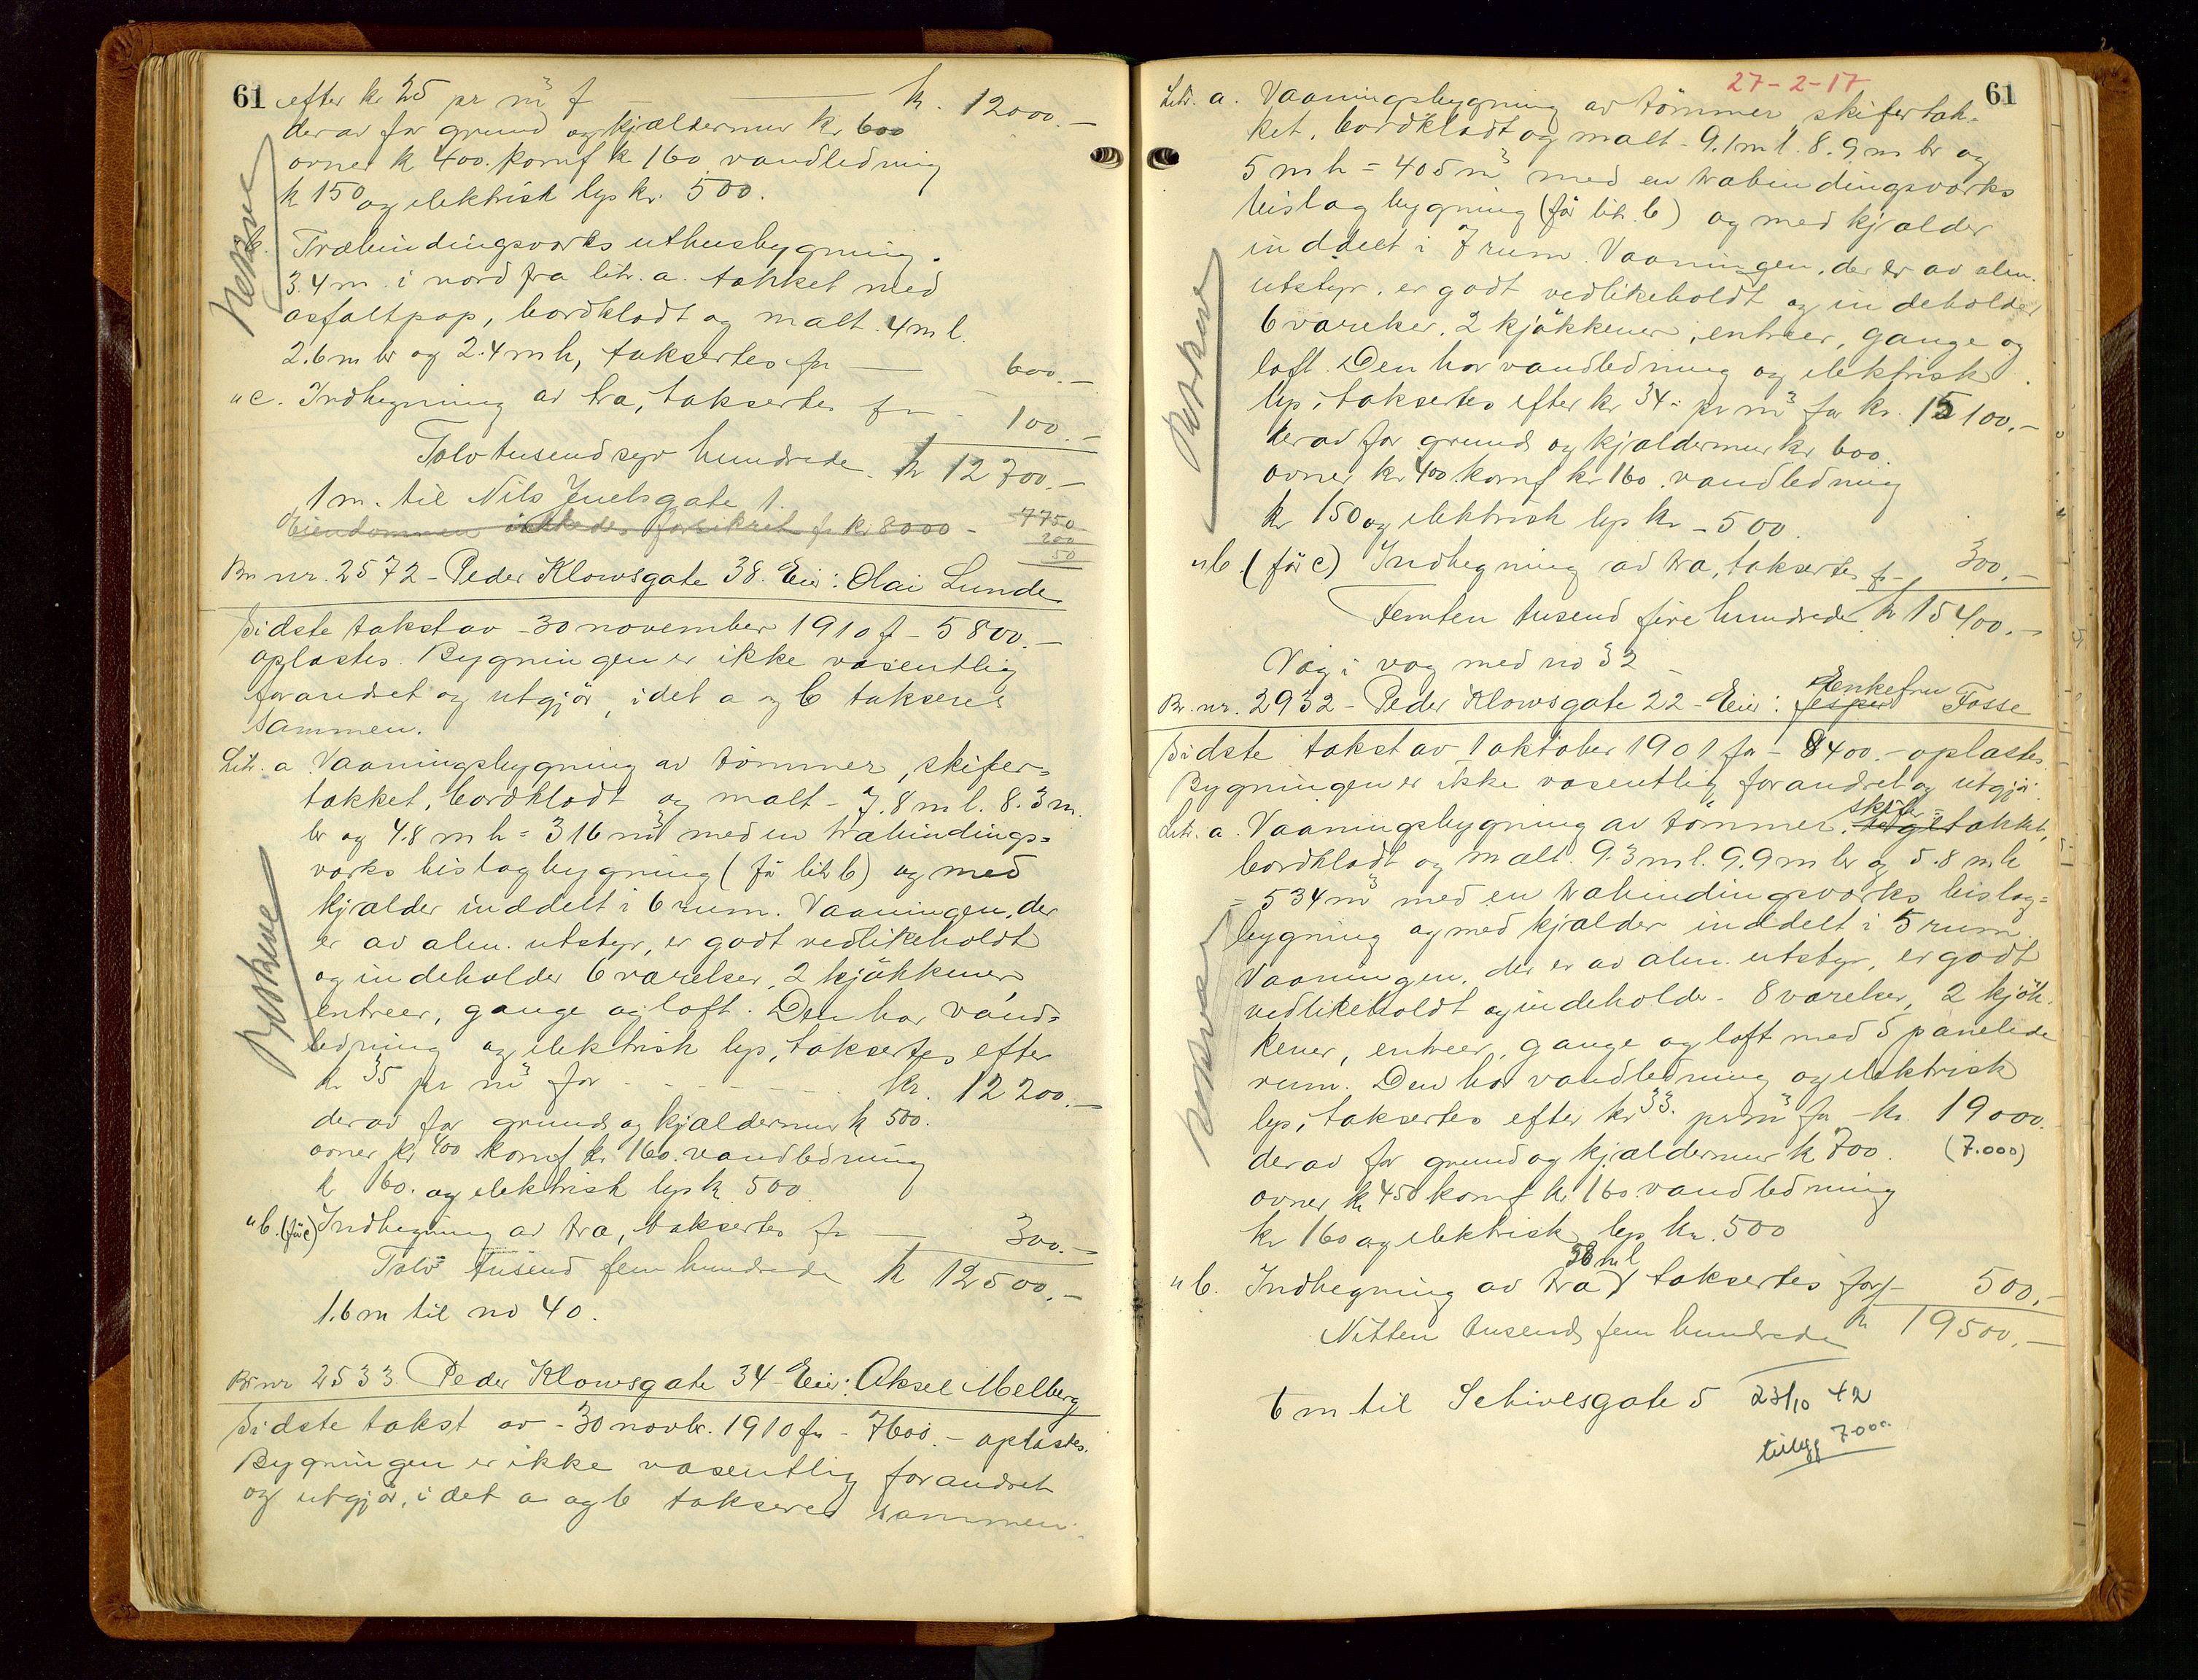 61 efter kr 25 pr m³ f — kr. 12000.-
derav for grund og kjældermur kr 600
ovner k 400. komf k 160 vandledning
k 150 og elektrisk lys kr. 500.
b. Træbindingsverks uthusbygning.
3.4 m. i nord fra litr. a. tækket med
asfaltpap, bordklædt og malt. 4 m l.
2.6 m br og 2.4 m h, taksertes for — 600.-
" c. Indhegning av træ, taksertes for - 100.-
Tolv tusend syv hundrede kr 12700.-
1 m. til Nils Juelsgate 1.
Eiendommen forsikret for kr 8000 - 7750
200
50
Br nr. 2572 - Peder Klowsgate 38. Eier: Olai Lunde
Sidste takst av - 30 november 1910 f - 5800.-
oplæstes. Bygningen er ikke væsentlig
forandret og utgjör, idet a og b takseres
sammen.
Litr. a Vaaningsbygning av tömmer, skifer=
tækket, bordklædt og malt - 7.8 m l. 8.3 m.
br og 4.8 m h = 316 m³ med en træbindings=
verks bislagbygning (för litr b) og med
kjælder inddelt i 6 rum. Vaaningen, der
er av alm. utstyr, er godt vedlikeholdt
og indeholder 6 værelser, 2 kjökkener,
entreer, gange og loft. Den har vand=
ledning og elektrisk lys, taksertes efter
kr 35 pr m³ for - - - - - kr. 12200.-
derav for grund og kjældermur k 500.
ovner kr 400 komf kr 160. vandledning
k 160. og elektrisk lys k 500
" b. (för c) Indhegning av træ, taksertes for — 300.-
Tolv tusend fem hundrede k 12500.-
1.6 m til no 40.
Br nr 2533 Peder Klowsgate 34 - Eier: Aksel Melberg
Sidste takst av - 30 novbr. 1910 for - 7600.- oplæstes.
Bygningen er ikke væsentlig forandret
og utgjör, i det a og b takseres sammen.
27-2-17
61
Litr. a. Vaaningsbygning av tömmer, skifertæk-
ket, bordklædt og malt - 9.1 m l. 8.9 m br og
5 m h = 405 m³ med en træbindingsverks
bislagbygning (för litr. b) og med kjælder
inddelt i 7 rum. Vaaningen, der er av alm.
utstyr, er godt vedlikeholdt og indeholder
6 værelser, 2 kjökkener, entreer, gange og
loft. Den har vandledning og elektrisk
lys, taksertes efter kr 34 - pr m³ for kr. 15100.-
derav for grund og kjældermur kr 600
ovner kr 400 komf kr 160. vandledning
kr 150 og elektrisk lys kr - 500.
" b. (för c) Indhegning av træ, taksertes for - 300.-
Femten tusend fire hundrede kr 15400.-
Væg i væg med no 32 -
Br. nr. 2932 - Peder Klowsgate 22 - Eier: Jesper Enkefru Fosse
Sidste takst av 1 oktober 1901 for - 8400.- oplæstes.
Bygningen er ikke væsentlig forandret og utgjör:
Litr. a. Vaaningsbygning av tömmer, tegl skifer=tækket,
bordklædt og malt. 9.3 m l. 9.9 m br og 5.8 m h
= 534 m³ med en træbindingsverks bislag=
bygning og med kjælder inddelt i 5 rum.
Vaaningen, der er av alm. utstyr, er godt
vedlikeholdt og indeholder - 8 værelser, 2 kjök-
kener, entreer, gange og loft med 5 panelede
rum. Den har vandledning og elektrisk
lys, taksertes efter kr 33. pr m³ for - kr. 19000.
derav for grund og kjældermur k 700. (7.000)
ovner k 450 komf k. 160 vandledning
kr 160 og elektrisk lys kr. 500
" b. Indhegning av træ 38 m l taksertes for - 500.-
Nitten tusend fem hundrede kr 19500.-
6 m til Schivesgate 5 23/10 42
tillegg 7000